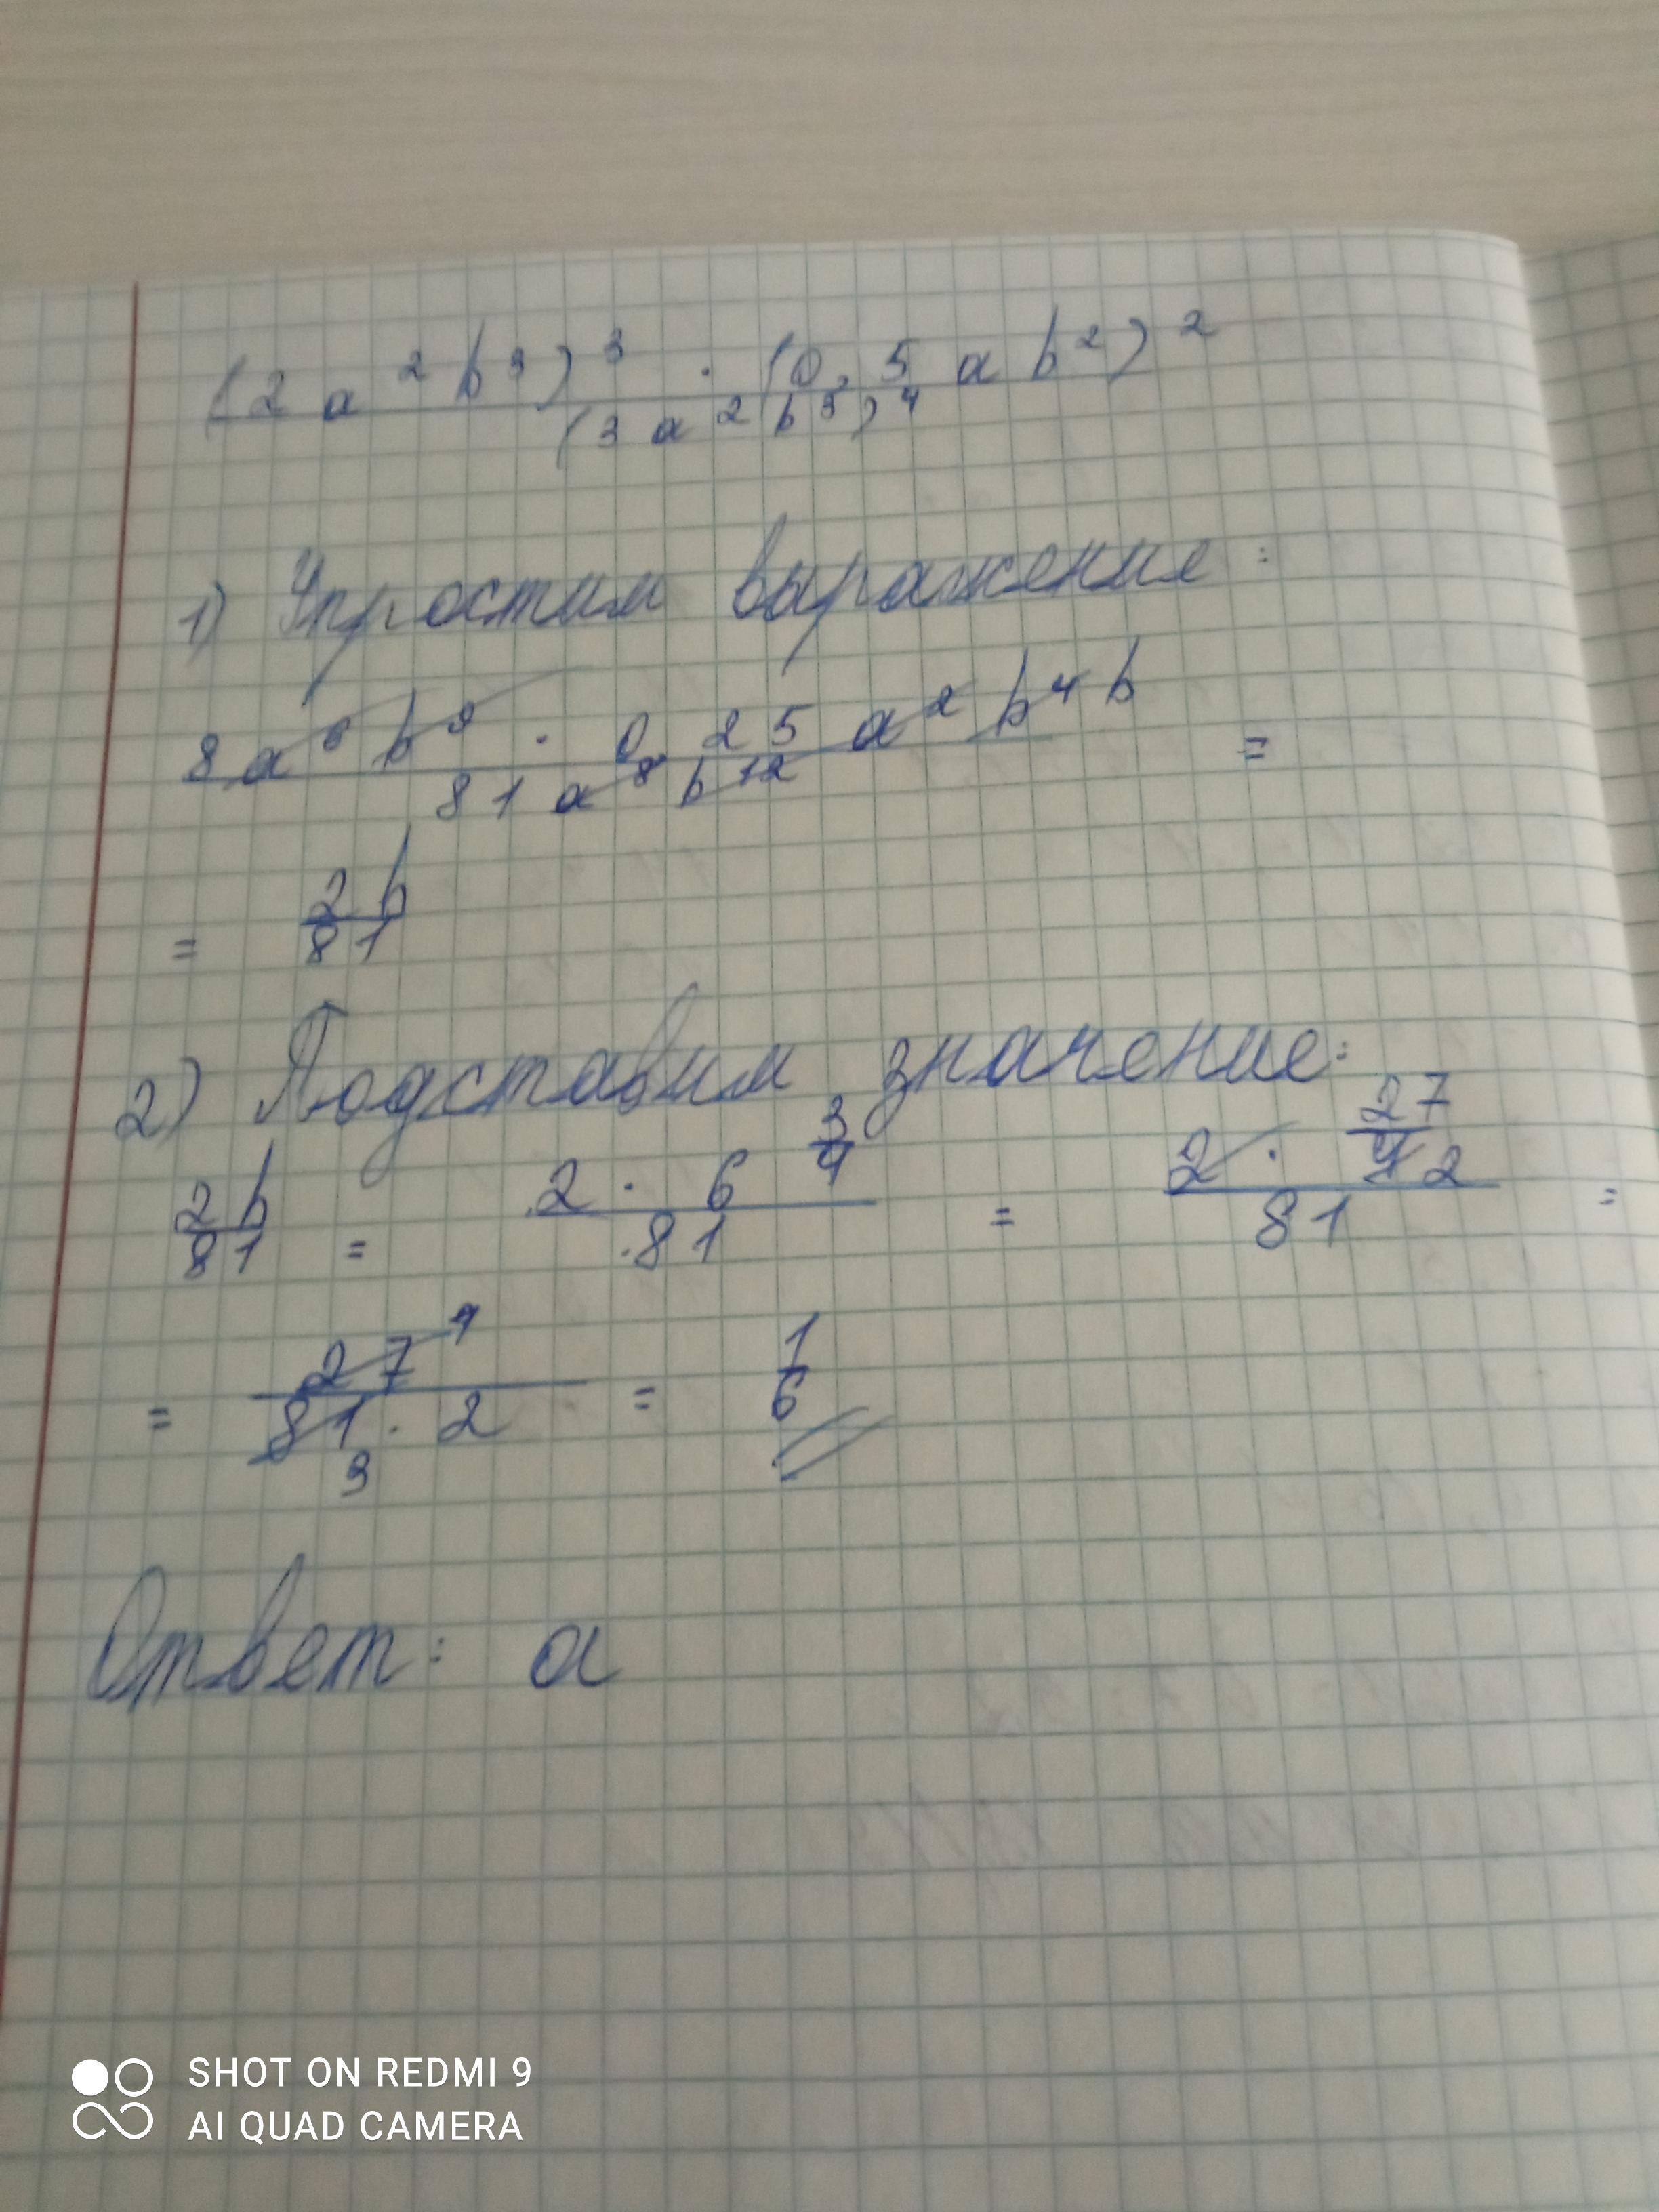 (2a²b³)³ · (0,5ab²)²
(3a²b³)⁴
1) Упростим выражение:
8a⁶b⁹ · 0,25a²b⁴b =
81a⁸b¹²
= 2b
81
2) Подставим значение:
2b = 2 · 6 3/4 = 2 · 27/4 2 =
81 81 81
= 27 1 = 1
81 · 2 6
3
Ответ: а
SHOT ON REDMI 9
AI QUAD CAMERA